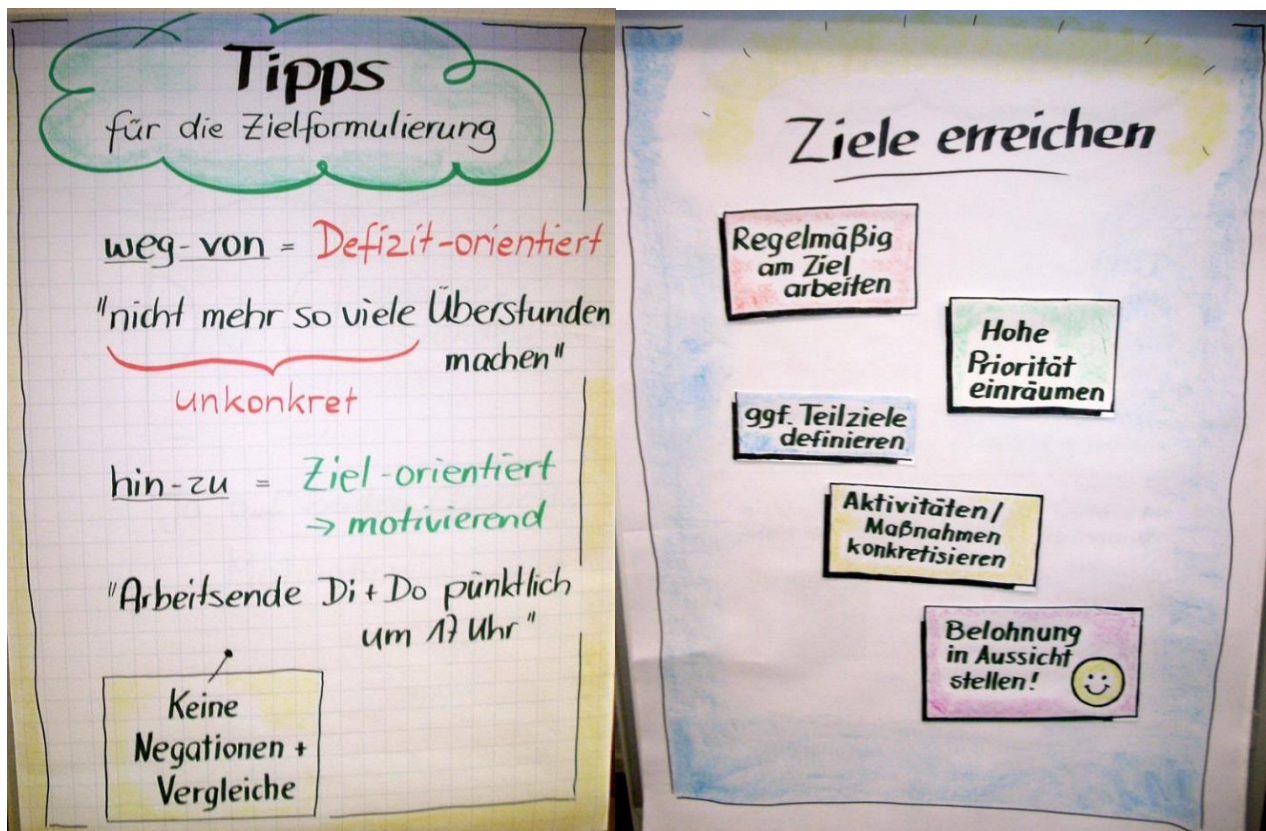 Tipps
für die Zielformulierung
weg-von = Defizit-orientiert
"nicht mehr so viele Überstunden
machen"
unkonkret
hin-zu = Ziel-orientiert
→ motivierend
"Arbeitsende Di + Do pünktlich
um 17 Uhr"
Keine
Negationen +
Vergleiche
Ziele erreichen
Regelmäßig
am Ziel
arbeiten
Hohe
Priorität
einräumen
ggf. Teilziele
definieren
Aktivitäten/
Maßnahmen
konkretisieren
Belohnung
in Aussicht
stellen!